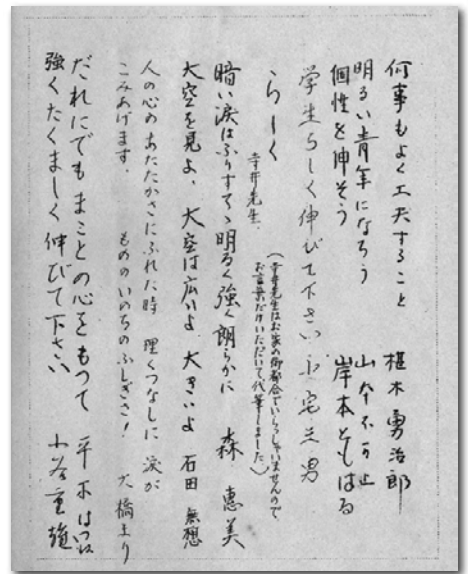 何事もよく工夫すること 椹木勇治郎
明るい青年になろう 山本不可止
個性を伸そう 岸本ともはる
学生らしく伸びて下さい 三宅三男
らしく 寺井先生
(寺井先生はお家の御都合でいらっしゃいませんので
お言葉だけいただいて代筆しました。)
暗い涙はふりすてゝ明るく強く朗らかに 森 恵美
大空を見よ、大空は広いよ 大きいよ 石田 無想
人の心のあたたかさにふれた時 理くつなしに 涙が
こみあげます、 もののいのちのふしぎさ! 大橋まり
だれにでもまことの心をもつて 平木はつね
強くたくましく伸びて下さい 小谷重雄